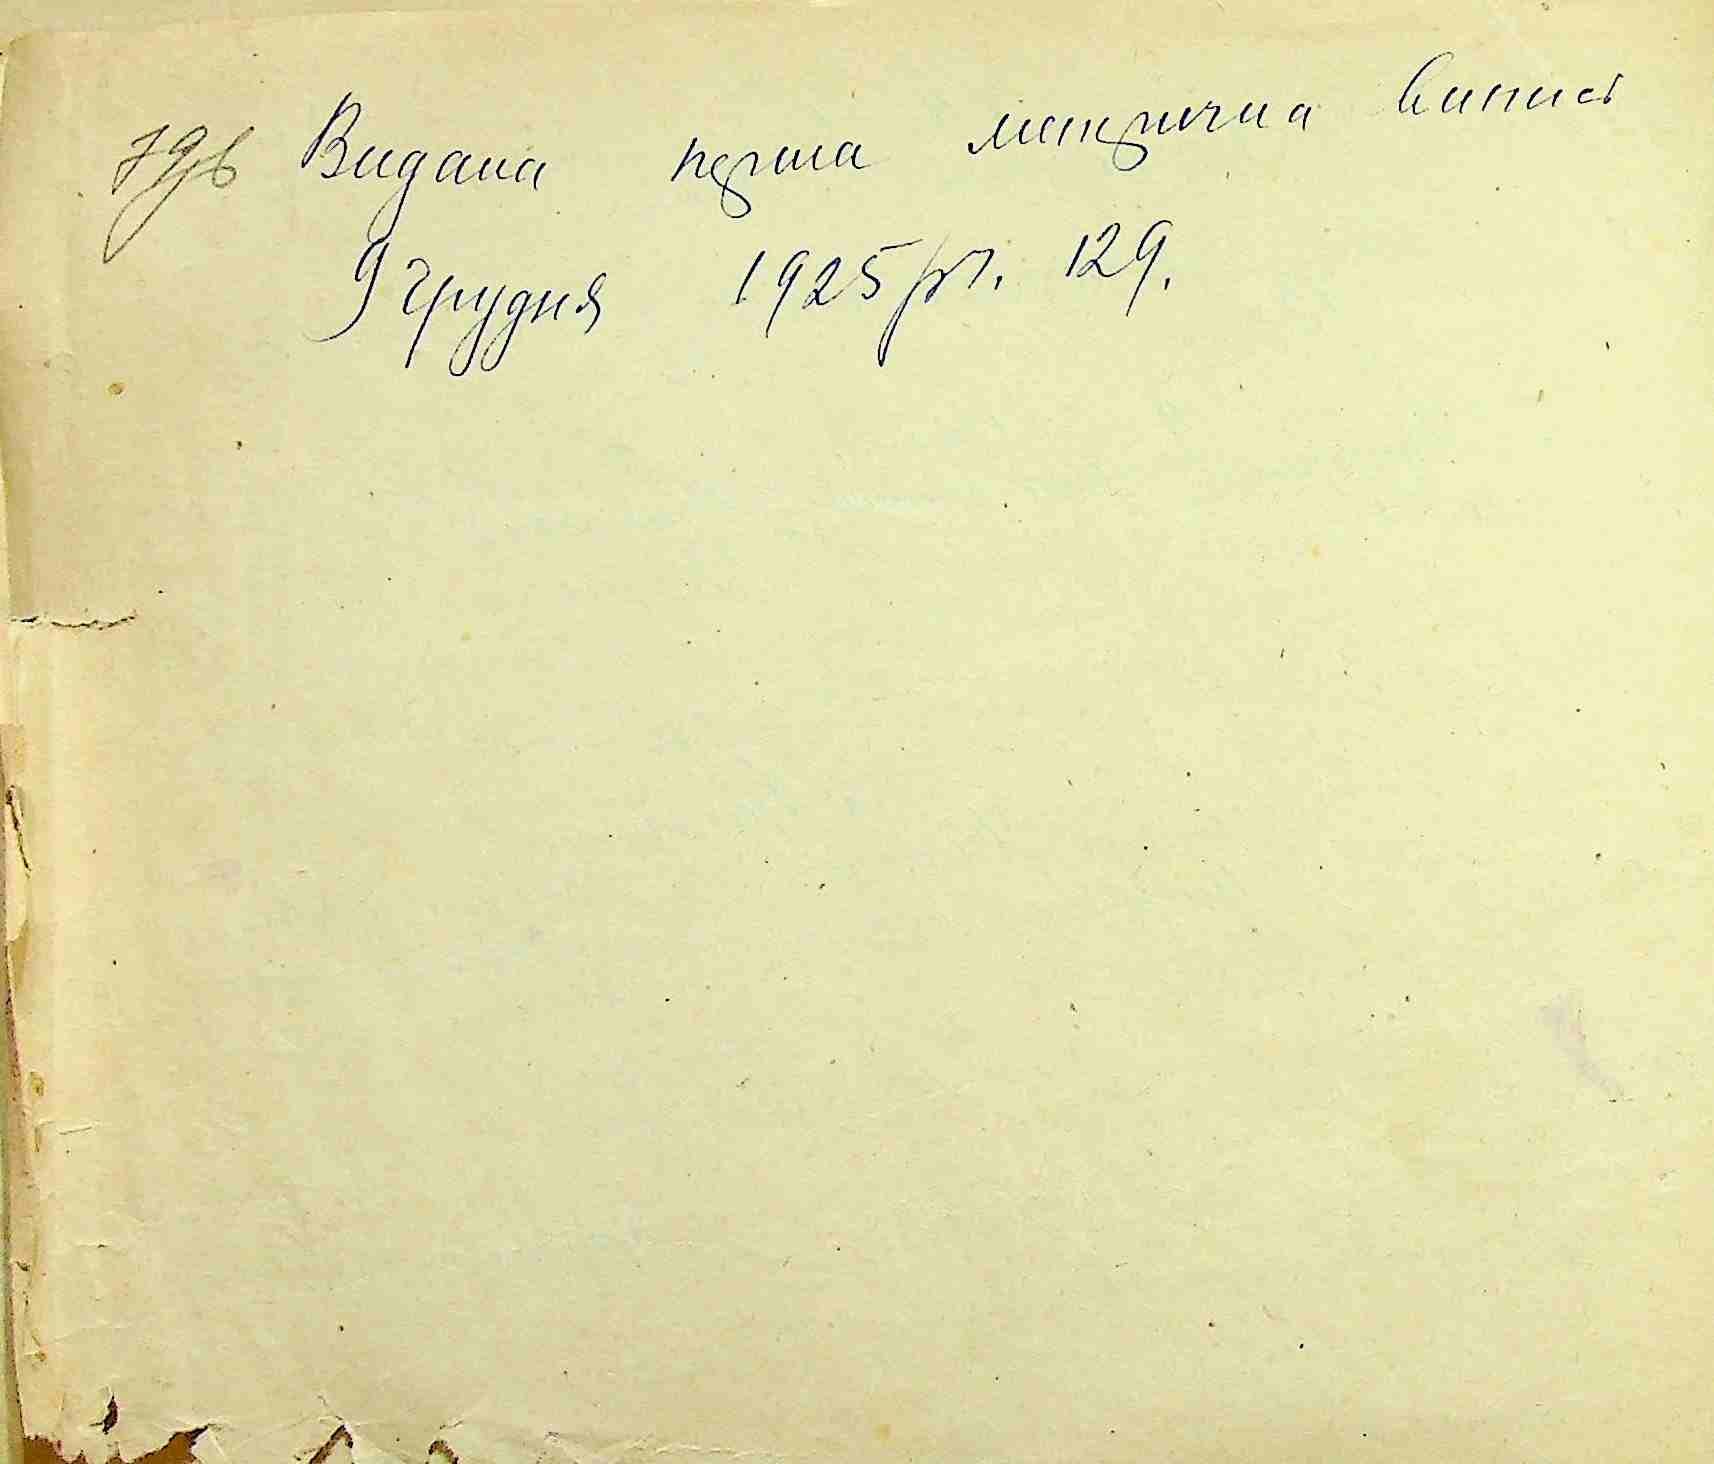 Видана перша метрична випись
9 грудня 1925 р. ч. 129.